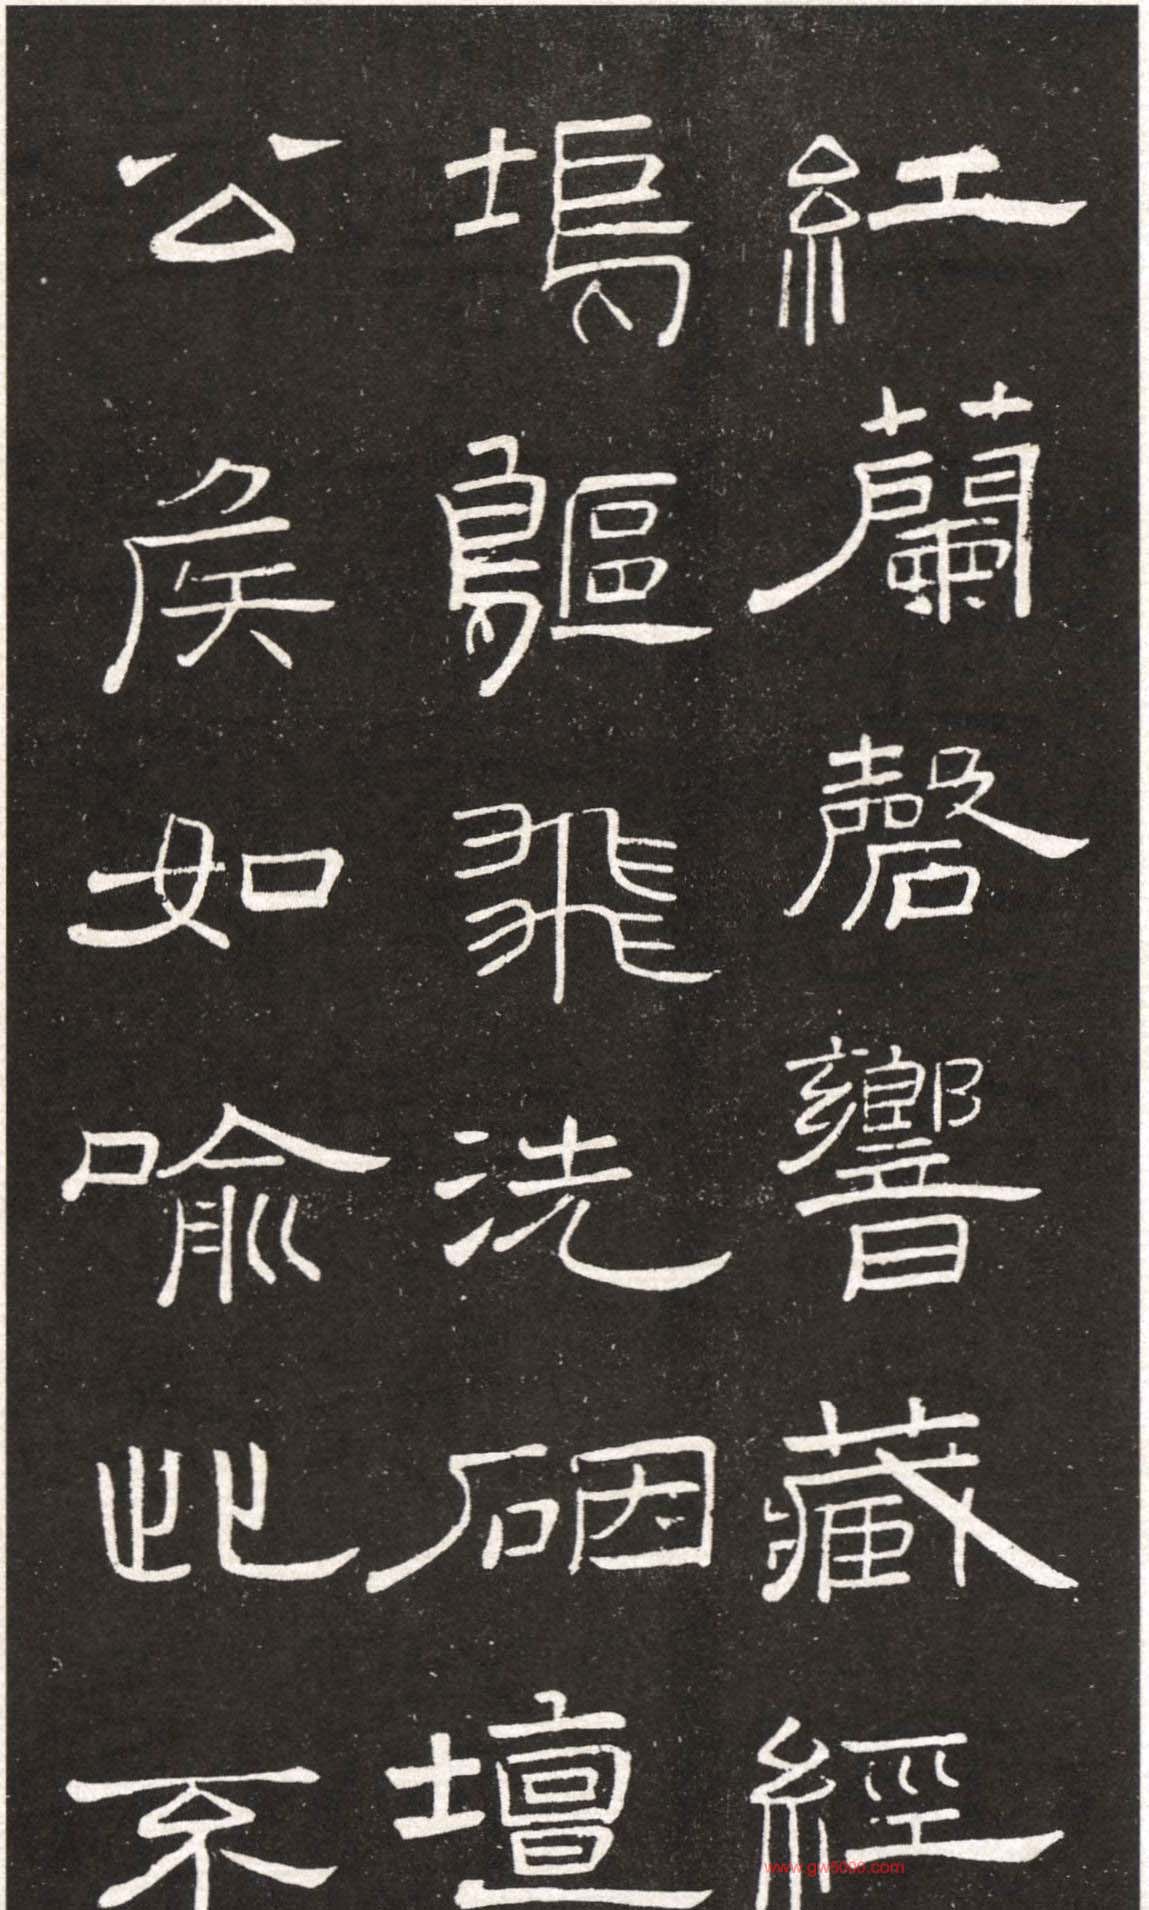 紅蘭磬響藏經
塢鷗飛洗硯壇
公侯如喻此不
www.gw8090.com